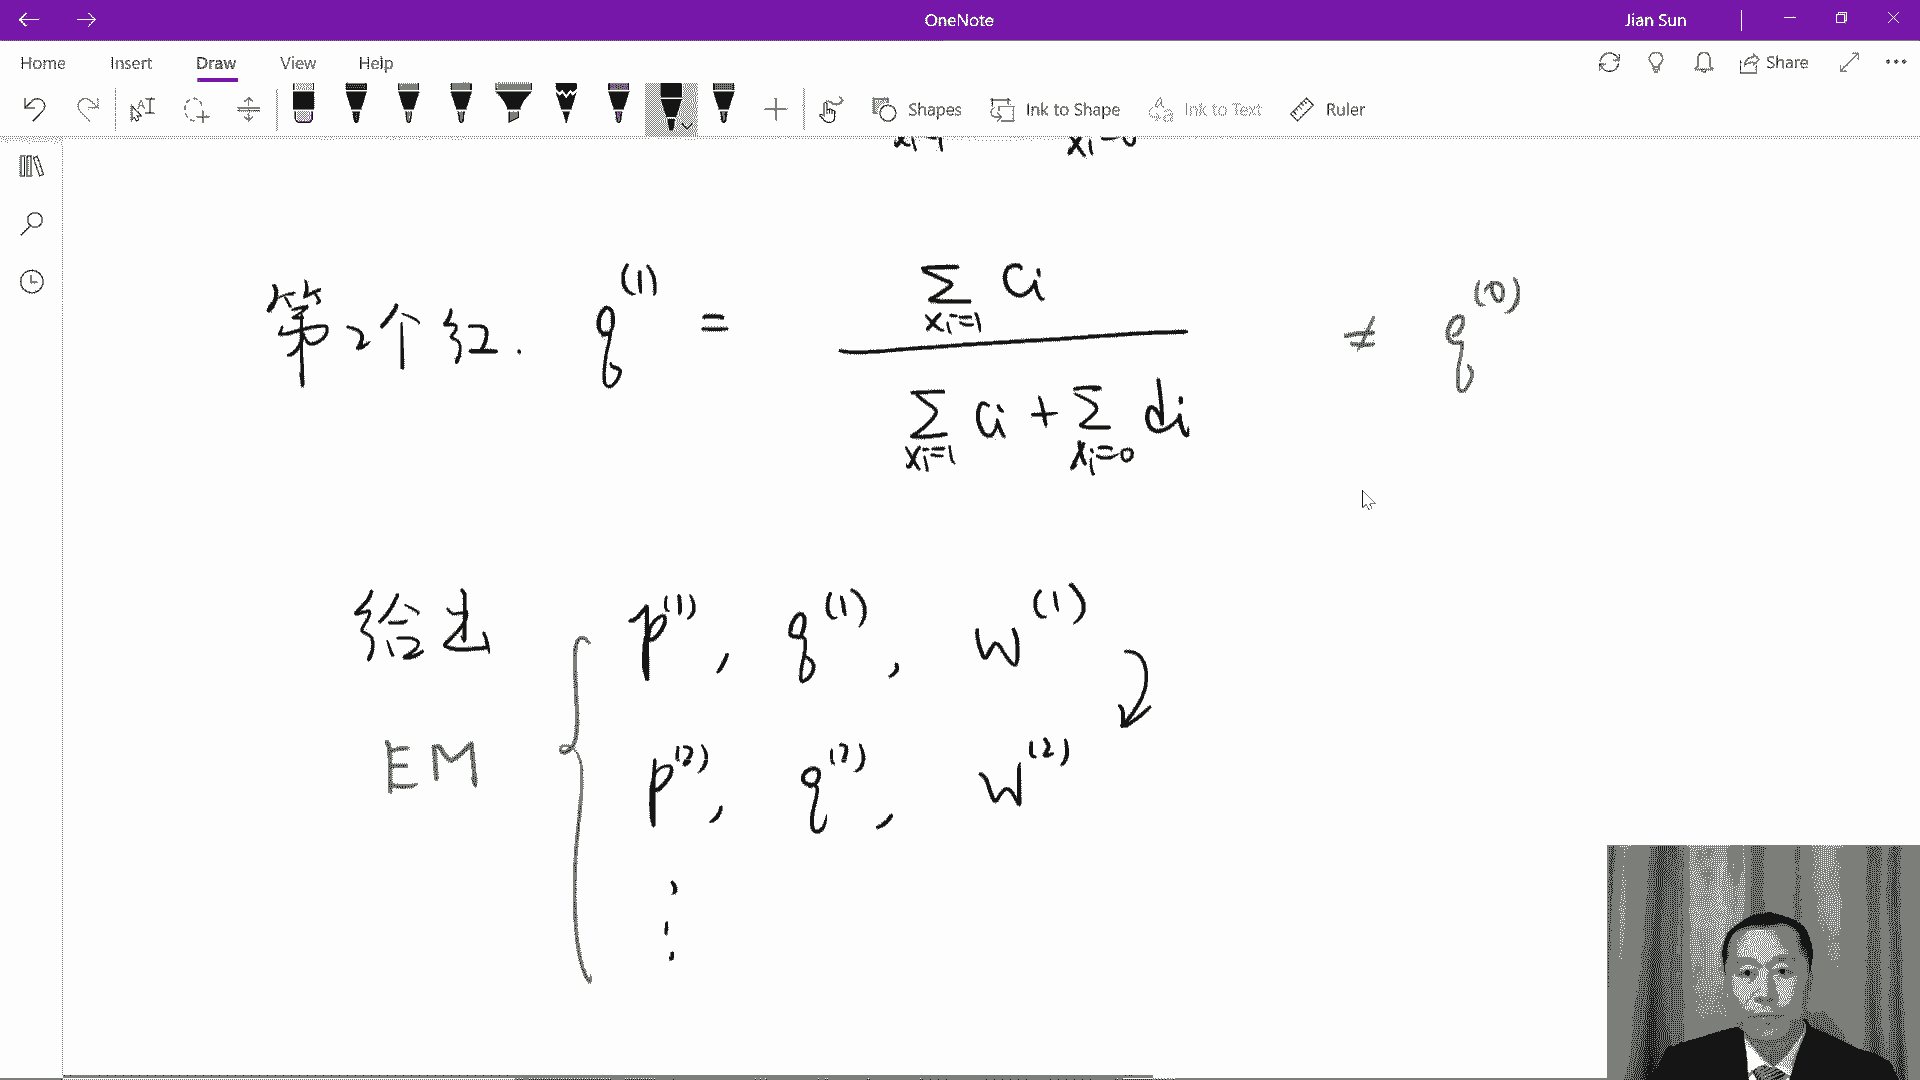 OneNote
Jian Sun
Home Insert Draw View Help Share
Shapes Ink to Shape Ink to Text Ruler
xi=1 xi=0
第2个红. q^(1) = ∑_{xi=1} ci / (∑_{xi=1} ci + ∑_{xi=0} di) ≠ q^(0)
给出 p^(1), q^(1), w^(1)
EM p^(2), q^(2), w^(2)
⋮